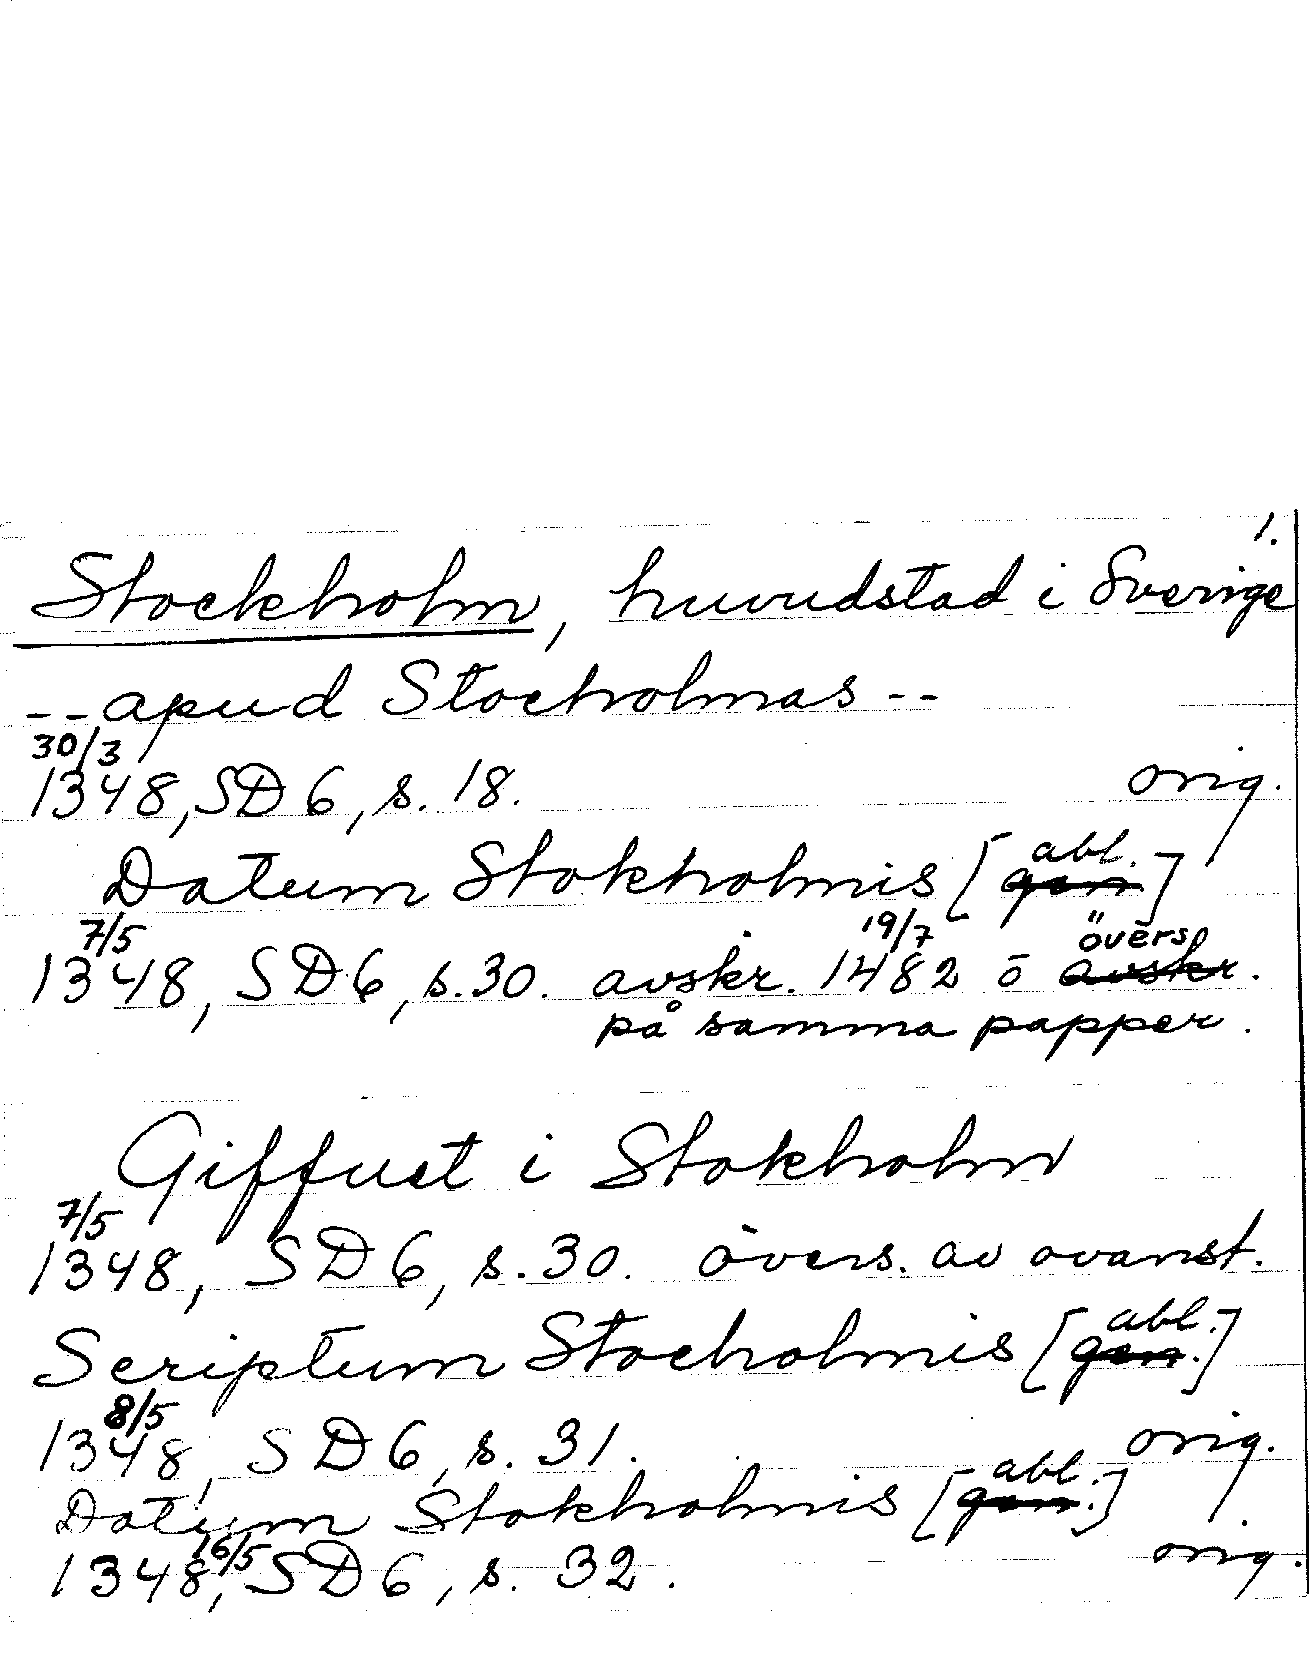 1.
Stockholm, huvudstad i Sverige
-- apud Stocholmas --
30/3
1348, SD 6, s. 18. orig.
Datum Stokholmis [gen. abl.]
7/5 19/7 övers
1348, SD 6, s. 30. avskr. 1482 o avskr.
på samma papper.
Giffuet i Stokholm
7/5
1348, SD 6, s. 30. övers. av ovanst.
Scriptum Stocholmis [gen. abl.]
8/5
1348, SD 6, s. 31. orig.
Datum Stokholmis [gen. abl.]
16/5
1348, SD 6, s. 32. orig.